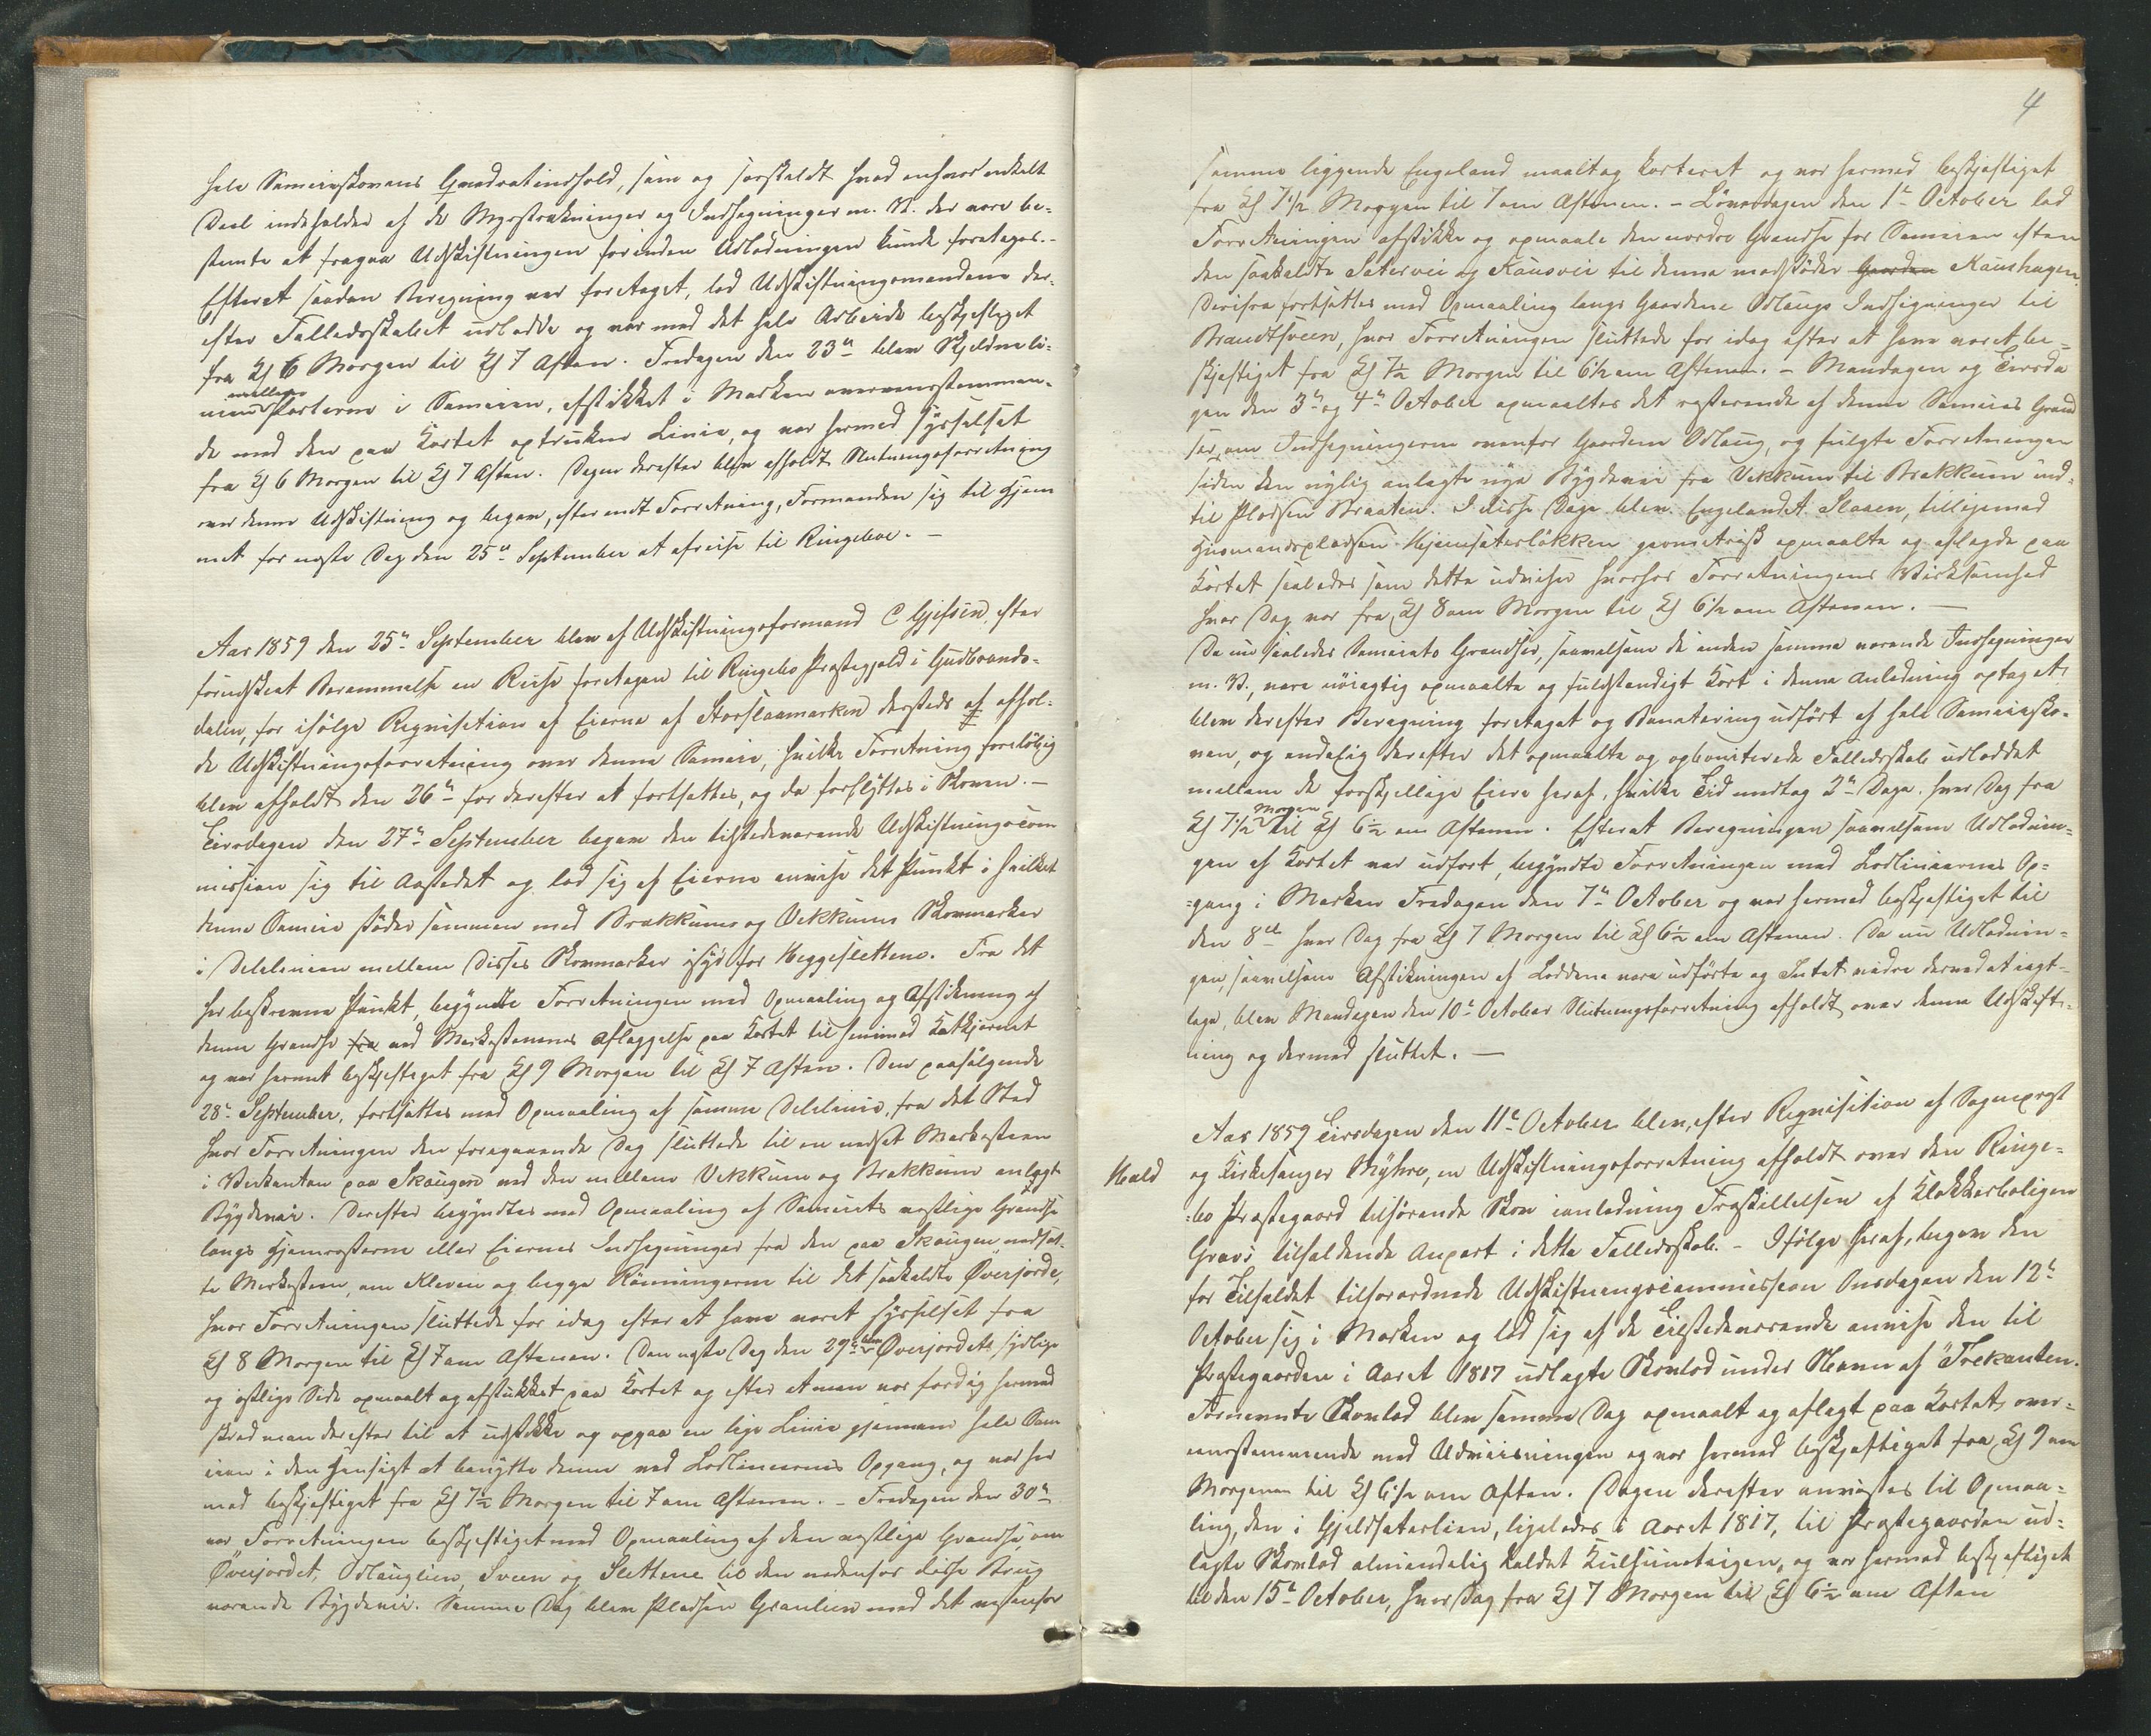 hele Sameieskovens Qvadratindhold, som og særskildt hvad enhver enkelt
Deel indeholder af de Myrstrækninger og Indhegninger m. V. der vare be-
stemte at fragaa Udskiftningen forinden Udlodningen kunde foretages. -
Efterat saadan Beregning var foretaget, lod Udskiftningsmændene der-
efter Fælledsskabet udlodde og var med det hele Arbeide beskjeftiget
fra Kl 6 Morgen til Kl 7 Aften. Fredagen den 23de blev Skjellineli-
mellem
nien Parterne i Sameien, afstikket i Marken overeensstemmen-
de med den paa Kortet optrukne Linie, og var hermed sysselsat
fra Kl 6 Morgen til Kl 7 Aften. Dagen derefter blev afholdt Slutningsforretning
over denne Udskiftning og begav, efter endt Forretning, Formanden sig til Hjem
met for næste Dag den 25de September at afreise til Ringeboe. -
Aar 1859 den 25de September blev af Udskiftningsformand C Gjefsen, efter
forudskeet Berammelse en Reise foretagen til Ringebo Præstegjeld i Gudbrands-
dalen, for ifølge Reqvisition af Eierne af Storslaamarken dersteds af afhol-
de Udskiftningsforretning over denne Sameie, hvilke Forretning foreløbig
blev afholdt den 26de for derefter at fortsættes, og da forflyttes i Skoven. -
Tirsdagen den 27de September begav den tilstedeværende Udskiftningscom
mission sig til Aastedet og lod sig af Eierne anvise det Punkt i hvilket
denne Sameie støder sammen med Brækkums og Vekkums Skovmarker
i Delelinien mellem disses Skovmarker isyd for Heggeslettene. Fra det
her beskrevne Punkt, begyndte Forretningen med Opmaaling og Afstikning af
denne Grændse fra ved Merkestenenes Aflæggelse paa Kortet til henimod Katkjernet
og var hermet beskjeftiget fra Kl 9 Morgen til Kl 7 Aften. Den paafølgende
28de September, fortsattes med Opmaaling af samme Delelinie, fra det Sted
hvor Forretningen den foregaaende Dag sluttede til en nedsat Merkesteen
i Vestkanten paa Skaugen ved den mellem Vekkum og Brækkum anlagte
Bygdevei. Derefter begyndtes med Opmaaling af Sameiets vestlige Grændse
langs Hjemrasterne eller Eiernes Indhegninger fra den paa Skaugen nedsat-
te Merkesteen, om Kleven og begge Rønningerne til det saakaldte Øverjorde,
hvor Forretningen sluttede for idag efter at have været sysselsat fra
Kl 8 Morgen til Kl 7 om Aftenen. Den næste Dag den 29de blev Øverjordets sydlige
og østlige Side opmaalt og afstukket paa Kortet og efter at man var færdig hermed
skred man derefter til at udstikke og opgaa en lige Linie gjennem hele Sam
eien i den Hensigt at benytte denne ved Lodliniernes Opgang, og var her
med beskjeftiget fra Kl 7½ Morgen til 7 om Aftenen. - Fredagen den 30de
var Forretningen beskjeftiget med Opmaaling af den vestlige Grændse, om
Øverjordet, Odlauglien, Sveen og Slettene til den nedenfor disse Brug
værende Bygdevei. Samme Dag blev Pladsen Granlien med det nedenfor
4
samme liggende Engeland maaltog korteret og var hermed beskjeftiget
fra Kl 7½ Morgen til 7 om Aftenen. - Lørverdagen den 1ste October lod
Forretningen afstikke og opmaale den nordre Grændse for Sameien efter
den saakaldte Sætervei og Kausvei til denne modstøder Gaarden Kaushagen.
Derifra fortsattes med Opmaaling langs Gaardene Odlaugs Indhegninger til
Brandtsveen, hvor Forretningen sluttede for idag efter at have været be-
skjeftiget fra Kl 7½ Morgen til 6½ om Aftenen. - Mandagen og Tirsda
gen den 3de og 4de October opmaaltes det resterende af denne Sameies Grænd
ser, om Indhegningerne ovenfor Gaardene Odlaug, og fulgte Forretningen
siden den nylig anlagte nye Bygdevei fra Vekkum til Brækkum ind-
til Pladsen Braaten. I disse Dage blev Engelandet Slaaen, tilligemed
Huusmandspladsen Hjemsæterløkken geometrisk opmaalte og aflagde paa
Kortet saaledes som dette udviser hvorhos Forretningens Virksomhed
hver Dag var fra Kl 8 om Morgen til Kl 6½ om Aftenen. -
Da nu saaledes Sameiets Grændser, saavelsom de inden samme værende Indhegninger
m. V., vare nøiagtig opmaalte og fuldstændigt Kort i denne Anledning optaget,
blev derefter Beregning foretaget og Bonitering udført af hele Sameiesko-
ven, og endelig derefter det opmaalte og opboniterede Fælledsskab udloddet
mellem de forskjellige Eiere heraf, hvilke Tid medtog 2de Dage. hver Dag fra
Morgen
Kl 7½ til Kl 6½ om Aftenen. Efterat Beregningen saavelsom Udlodnin-
gen af Kortet var udført, begyndte Forretningen med Lodliniernes Op-
=gang i Marken Fredagen den 7de October og var hermed beskjeftiget til
den 8de hver Dag fra Kl 7 Morgen til Kl 6½ om Aftenen. Da nu Udlodnin-
gen, saavelsom Afstikningen af Loddene vare udførte og Intet videre derved at iagt-
tage, blev Mandagen den 10de October Slutningsforretning afholdt over denne Udskift-
ning og dermed sluttet. -
Aar 1859 Tirsdagen den 11te October blev, efter Reqvisition af Sogneprest
Hald og Kirkesanger Myhre, en Udskiftningsforretning afholdt over den Ringe-
=bo Præstegaard tilhørende Skov ianledning Fraskillelsen af Klokkerboligen
Gravs tilfaldende Anpart i dette Fælledsskab. - Ifølge heraf, begav den
for Tilfældet tilforordnede Udskiftningscommission Onsdagen den 12te
October sig i Marken og lod sig af de Tilstedeværende anvise den til
Præstegaarden i Aaret 1817 udlagte Skovlod under Navn af "Trekanten.
Førnevnte Skovlod blev samme Dag opmaalt og aflagt paa Kortet, over-
eensstemmende med Udviisningen og var hermed beskjeftiget fra Kl 9 om
Morgenen til Kl 6½ om Aften. Dagen derefter anvistes til Opmaa-
ling, den i Gjeldsæterlien, ligeledes i Aaret 1817, til Præstegaarden ud-
lagte Skovlod almindelig kaldet Kulhuusteigen, og var hermed beskjeftiget
til den 15de October, hver Dag fra Kl 7 Morgen til Kl 6½ om Aften